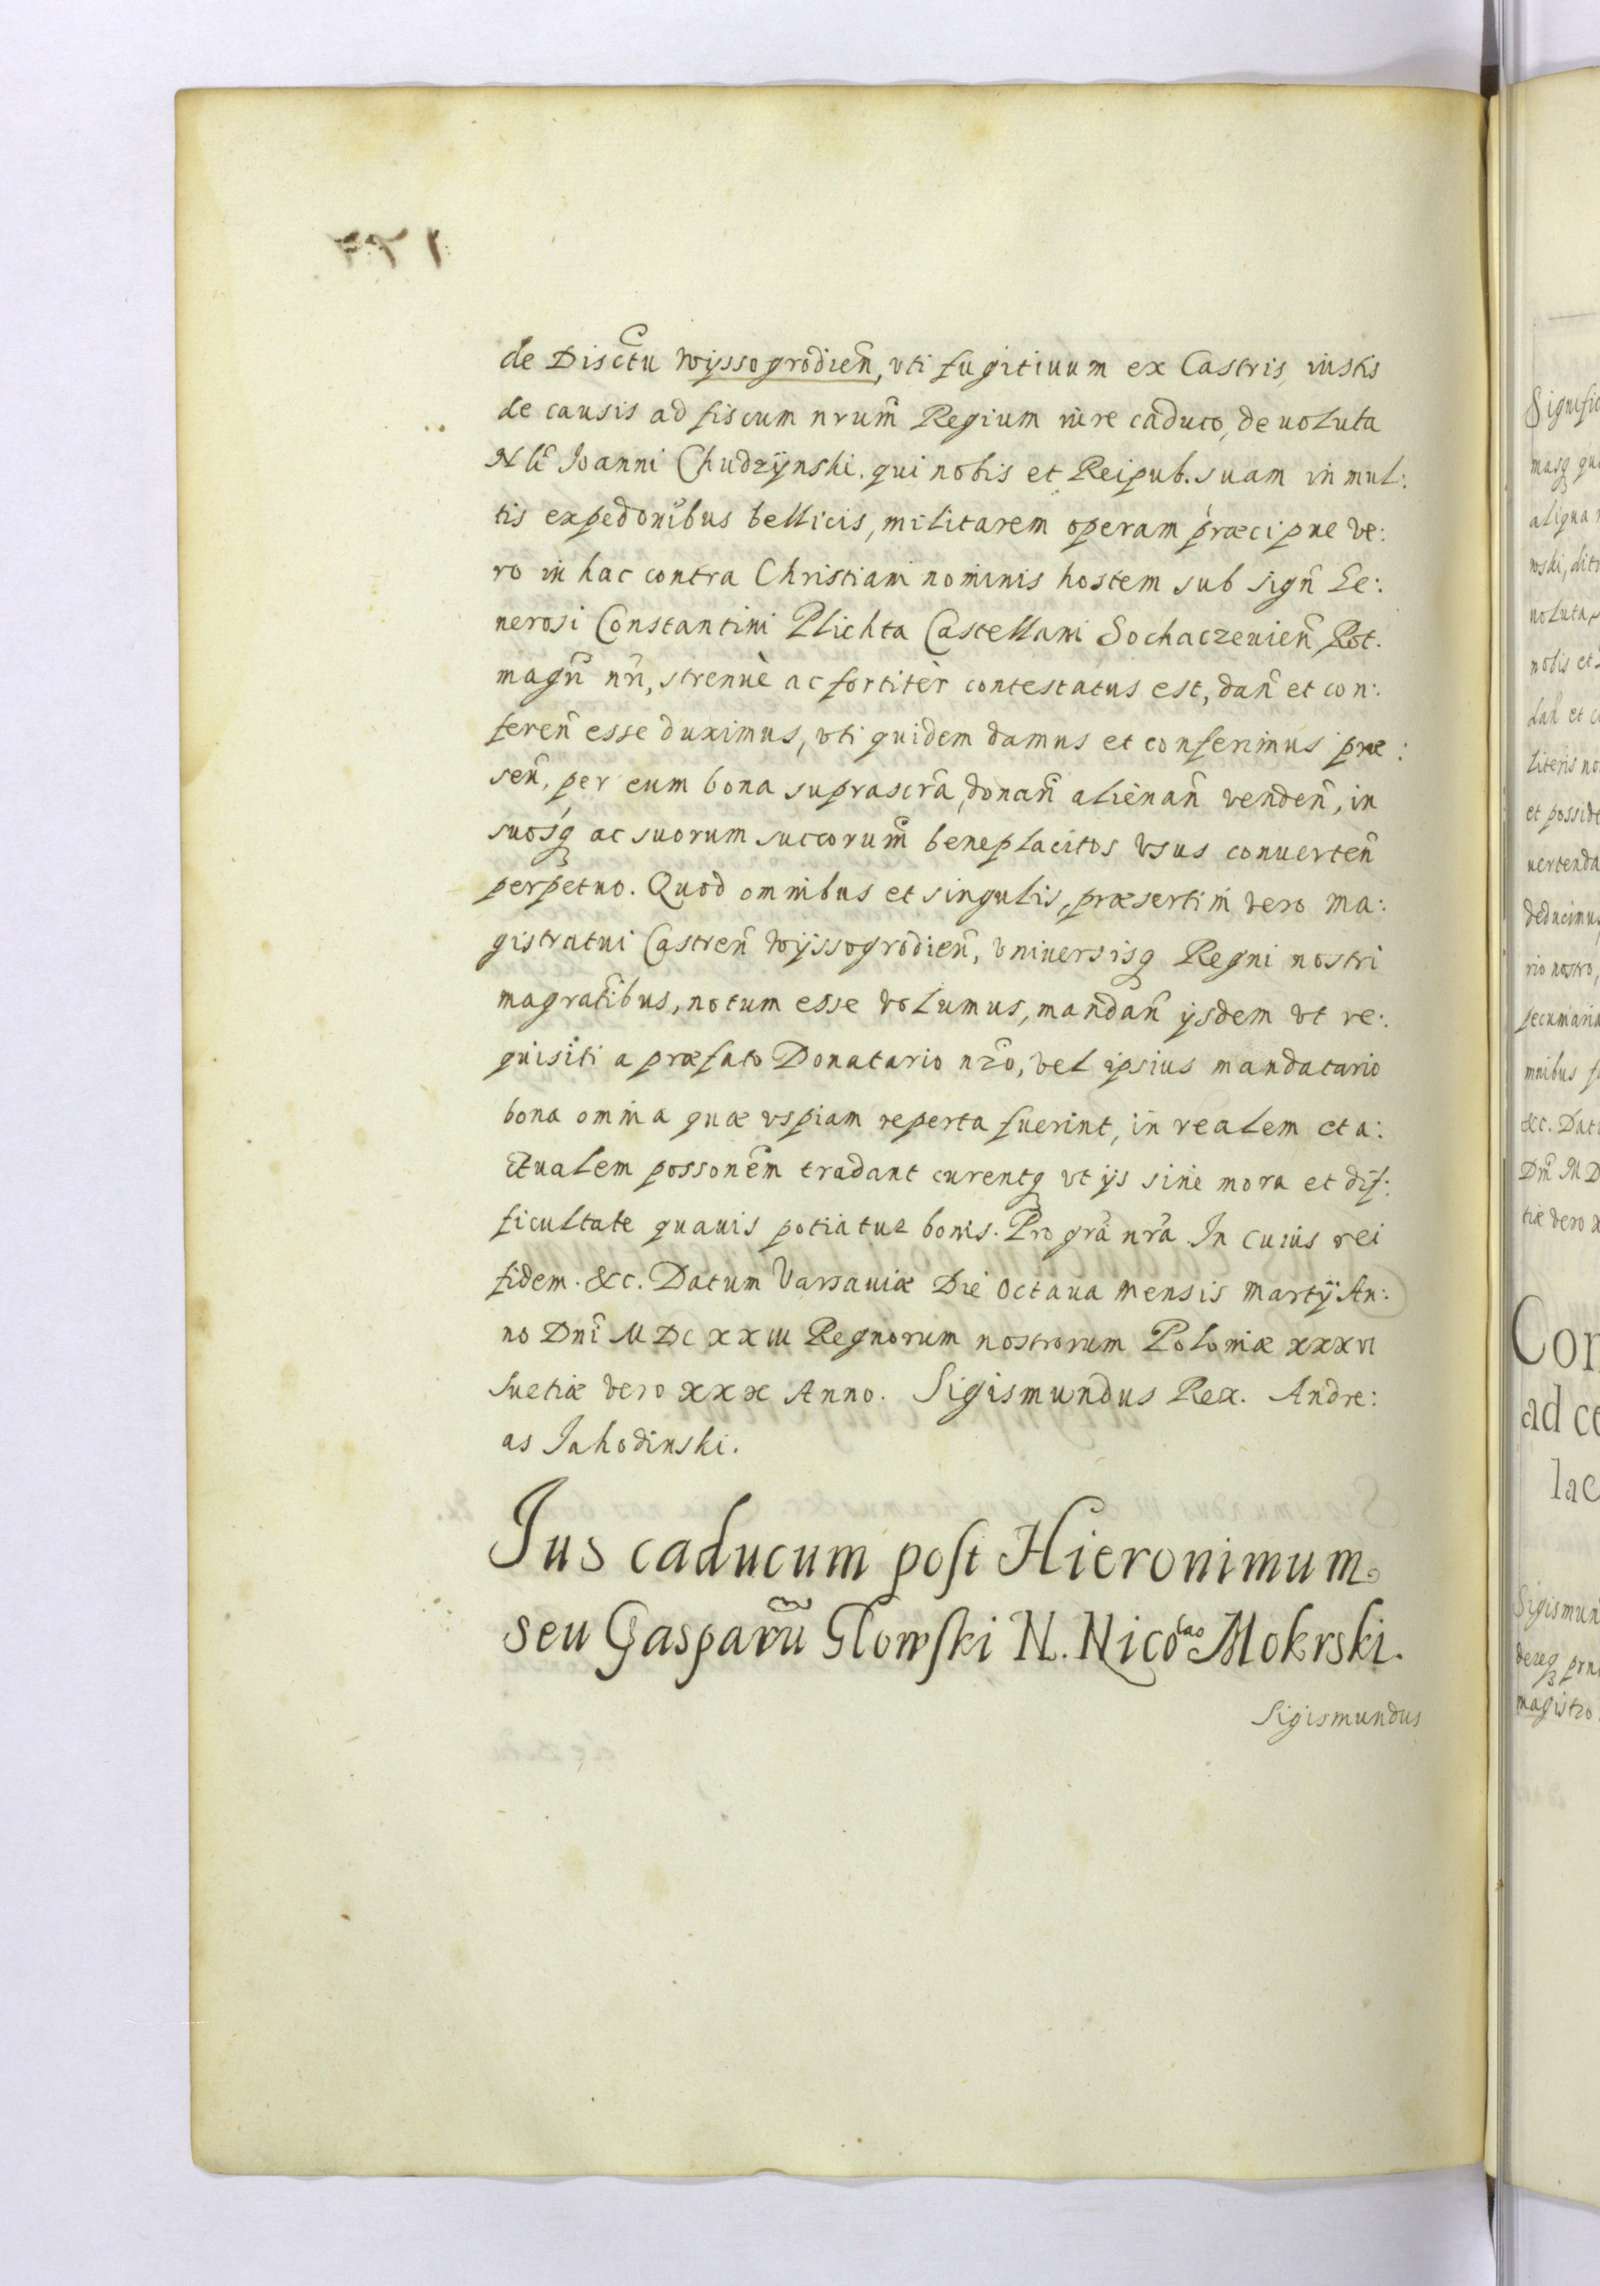 de Disctũ Wyssogrodien̄, vti fugitiuum ex Castris, iustis
de causis ad fiscum nrum̃ Regium iure caduco, deuoluta
Nli Joanni Chudzÿnski. qui nobis et Reipub. suam in mul:
tis expedonibus bellicis, militarem operam præcipue ve:
ro in hac contra Christiani nominis hostem sub sign̄ Ge:
nerosi Constantini Plichta Castellani Sochaczeuien̄ Rot.
magr̄i nr̄i, strenuè ac fortitèr contestatus est, dan̄ et con:
feren̄ esse duximus, vti quidem damus et conferimus præ:
sen̄, per eum bona suprascr̃a, donan̄ alienan̄ venden̄, in
suosq̨ ac suorum succorum̃ beneplacitos vsus conuerten̄
perpetuo. Quod omnibus et singulis, præsertim vero Ma:
gistratui Castren̄ Wyssogrodien̄, vniuersisq̨ Regni nostri
magratibus, notum esse volumus, mandan̄ ysdem vt re:
quisiti a præfato Donatario nr̃o, vel ipsius mandatario
bona omnia quæ vspiam reperta fuerint, in realem et a:
ctualem possonem̃ tradant curentq̨ vt ijs sine mora et dif:
ficultate quauis potiatur bonis. Pro gr̃a nr̃a. In cuius rei
fidem. &c. Datum Varsauiæ Die Octaua Mensis Martÿ An:
no Dnĩ MDCXXIII Regnorum nostrorum Poloniæ XXXVI
Suetiæ vero XXX Anno. Sigismundus Rex. Andre:
as Jahodinski.
Jus caducum post Hieronimum
seu Gasparũ Glowski N. Nicolao Mokrski.
Sigismundus